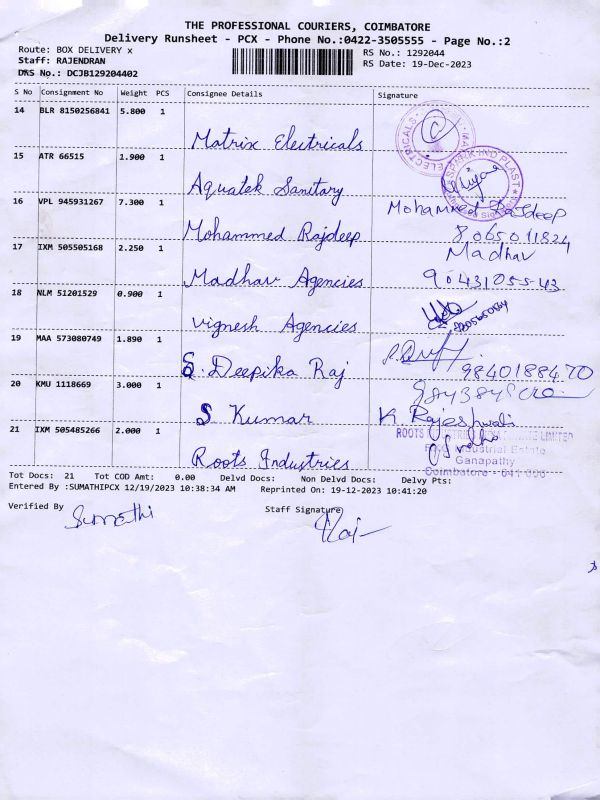 THE PROFESSIONAL COURIERS, COIMBATORE
Delivery Runsheet - PCX - Phone No.:0422-3505555 - Page No.:2
Route: BOX DELIVERY x
RS No.: 1292044
Staff: RAJENDRAN
RS Date: 19-Dec-2023
DRS No.: DCJB129204402
S No Consignment No Weight PCS Consignee Details Signature
14 BLR 8150256841 5.800 1
Matrix Electricals
15 ATR 66515 1.900 1
Aquatek Sanitary
16 VPL 945931267 7.300 1
Mohammed Rajdeep Mohammed Rajdeep
8065011824
17 IXM 505505168 2.250 1
Madhav
Madhav Agencies 9043105543
18 NLM 51201529 0.900 1
Vignesh Agencies
19 MAA 573080749 1.890 1
S. Deepika Raj 9840188470
20 KMU 1118669 3.000 1
S Kumar K. Rajeshwari
21 IXM 505485266 2.000 1
ROOTS LIMITED
Industrial Estate
Roots Industries Ganapathy
Coimbatore - 641 006
Tot Docs: 21 Tot COD Amt: 0.00 Delvd Docs: Non Delvd Docs: Delvy Pts:
Entered By :SUMATHIPCX 12/19/2023 10:38:34 AM Reprinted On: 19-12-2023 10:41:20
Verified By Sumathi Staff Signature Raj